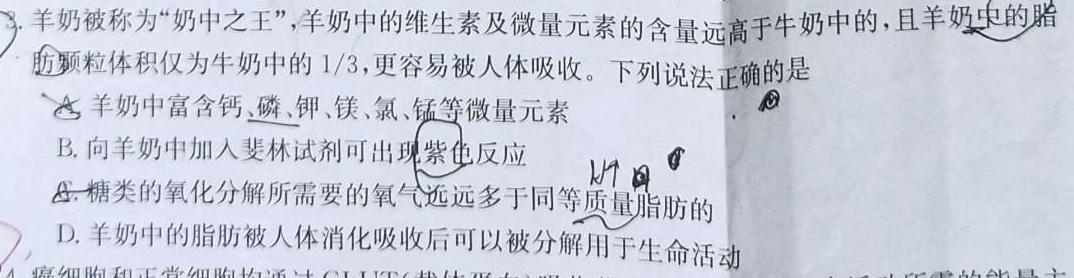 3. 羊奶被称为“奶中之王”,羊奶中的维生素及微量元素的含量远高于牛奶中的,且羊奶中的脂
肪颗粒体积仅为牛奶中的 1/3,更容易被人体吸收。下列说法正确的是
A. 羊奶中富含钙、磷、钾、镁、氯、锰等微量元素
B. 向羊奶中加入斐林试剂可出现紫色反应
C. 糖类的氧化分解所需要的氧气远远多于同等质量脂肪的
D. 羊奶中的脂肪被人体消化吸收后可以被分解用于生命活动